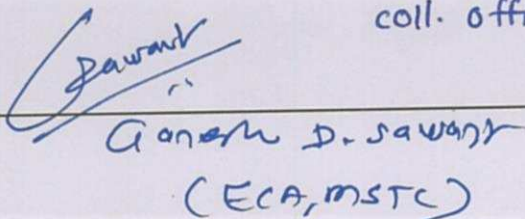 coll. offi
Sawant
Ganesh D. Sawant
(ECA, MSTC)